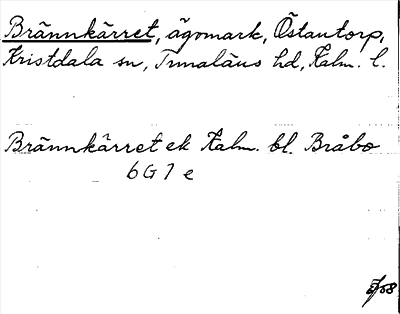 Brännkärret, ägomark, Östantorp,
Kristdala sn, Tunaläns hd, Kalm. l.
Brännkärret ek Kalm. bl. Bråbo
6G7e